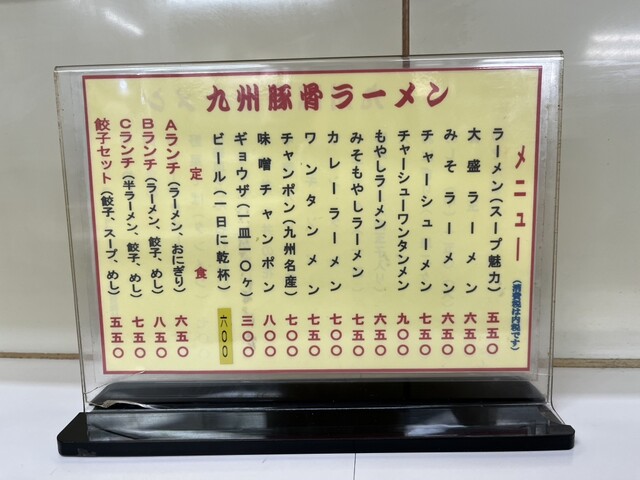 九州豚骨ラーメン
メニュー
(消費税は内税です)
ラーメン(スープ魅力) 五五〇
大盛ラーメン 六五〇
みそラーメン 六五〇
チャーシューメン 七五〇
チャーシューワンタンメン 九〇〇
もやしラーメン 六五〇
みそもやしラーメン 七五〇
カレーラーメン 七〇〇
ワンタンメン 七五〇
チャンポン(九州名産) 七〇〇
味噌チャンポン 八〇〇
ギョウザ(一皿一〇ヶ) 三〇〇
ビール(一日に乾杯) 六〇〇
定食
Aランチ(ラーメン、おにぎり) 六五〇
Bランチ(ラーメン、餃子、めし) 八五〇
Cランチ(半ラーメン、餃子、めし) 七五〇
餃子セット(餃子、スープ、めし) 五五〇